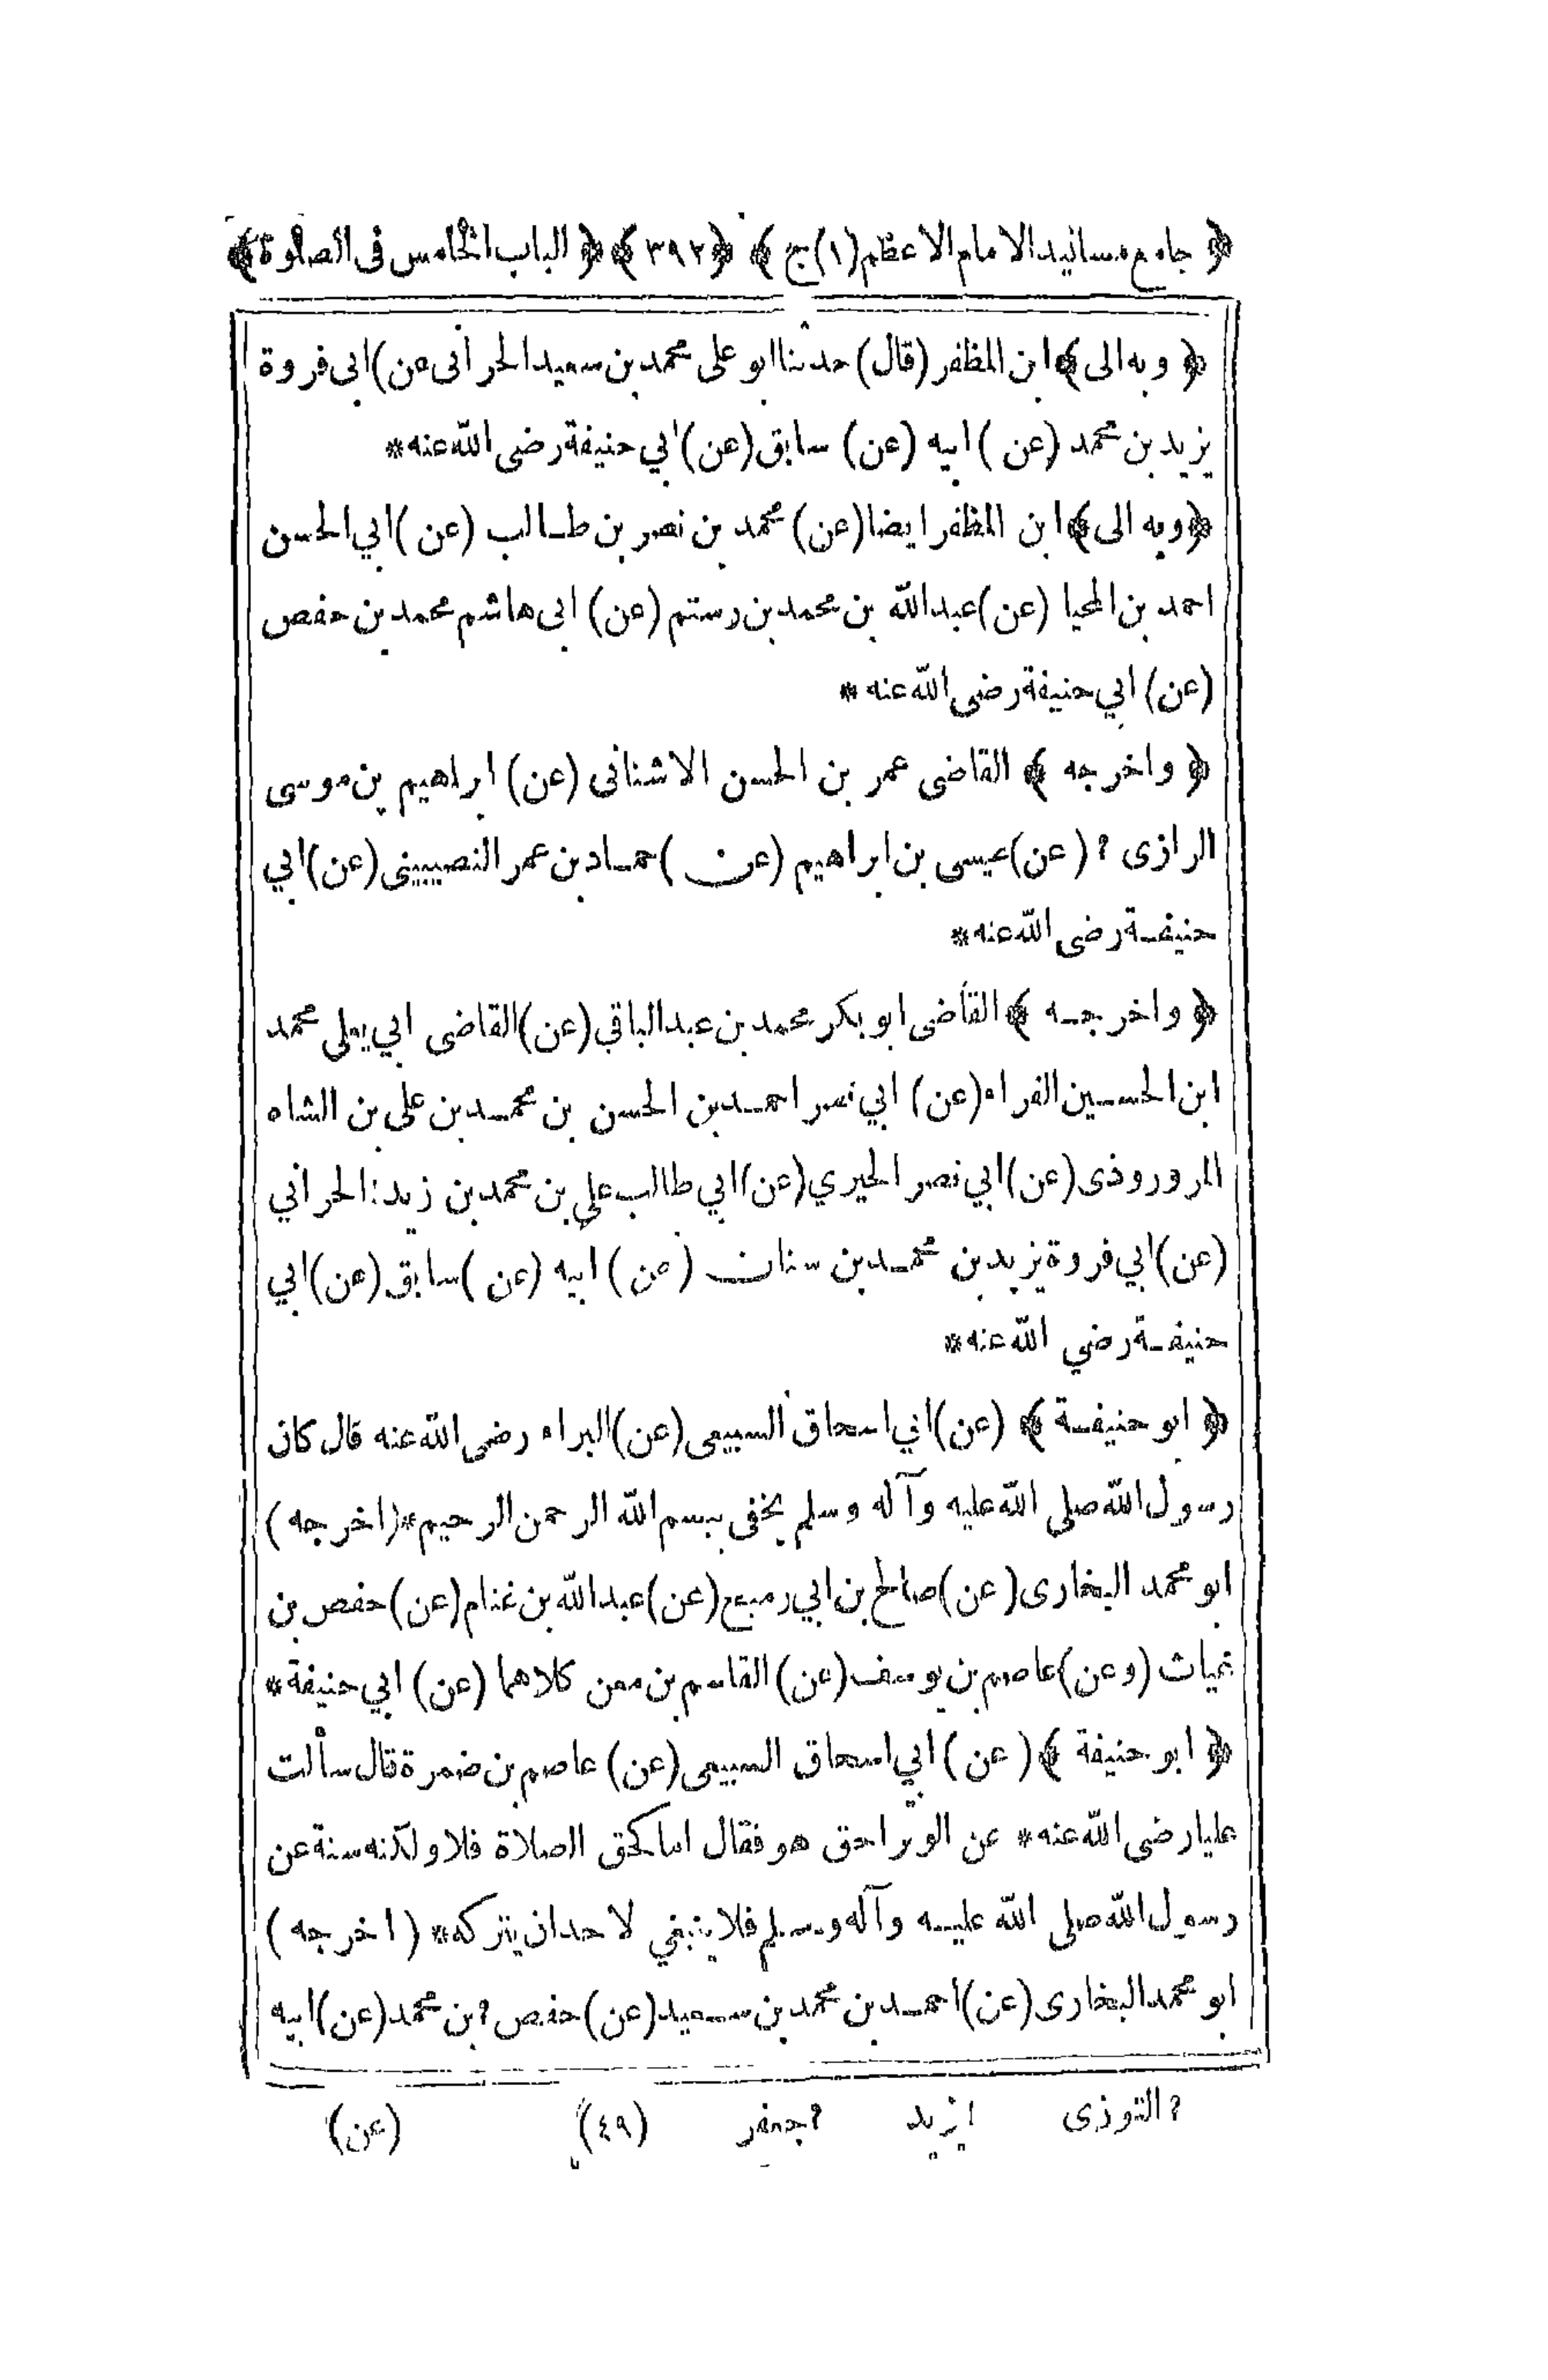 ﴿ جامع مسانيد الامام الاعظم (١) ج ﴾ ﴿ ٣٩٢ ﴾ ﴿ الباب الخامس فى الصلوة ﴾
﴿ وبه الى ﴾ ابن المظفر (قال) حدثنا ابو على محمد بن سعيد الحرانى عن) ابى فروة
يزيد بن محمد (عن) ابيه (عن) سابق (عن) ابي حنيفة رضى الله عنه*
﴿ وبه الى ﴾ ابن المظفر ايضا (عن) محمد بن نصر بن طالب (عن) ابي الحسن
احمد بن المحيا (عن) عبد الله بن محمد بن رستم (عن) ابى هاشم محمد بن حفص
(عن) ابي حنيفة رضى الله عنه *
﴿ واخرجه ﴾ القاضى عمر بن الحسن الاشنانى (عن) ابراهيم بن موسى
الرازى ? (عن) عيسى بن ابراهيم (عن) حماد بن عمر النصيبينى (عن) ابي
حنيفة رضى الله عنه*
﴿ واخرجه ﴾ القاضى ابو بكر محمد بن عبد الباقي (عن) القاضى ابي يعلى محمد
ابن الحسين الفراء (عن) ابي نصر احمد بن الحسن بن محمد بن على بن الشاه
المروروذى (عن) ابي نصر الحيري (عن) ابي طالب علي بن محمد بن زيد ! الحراني
(عن) ابي فروة يزيد بن محمد بن سنان (عن) ابيه (عن) سابق (عن) ابي
حنيفة رضي الله عنه*
﴿ ابو حنيفة ﴾ (عن) ابي اسحاق السبيعى (عن) البراء رضى الله عنه قال كان
رسول الله صلى الله عليه وآله وسلم يخفى ببسم الله الرحمن الرحيم* (اخرجه)
ابو محمد البخارى (عن) صالح بن ابي رميح (عن) عبد الله بن غنام (عن) حفص بن
غياث (وعن) عاصم بن يوسف (عن) القاسم بن معن كلاهما (عن) ابي حنيفة*
﴿ ابو حنيفة ﴾ (عن) ابي اسحاق السبيعى (عن) عاصم بن ضمرة قال سألت
عليا رضى الله عنه* عن الوتر احق هو فقال اما كحق الصلاة فلا ولكنه سنة عن
رسول الله صلى الله عليه وآله وسلم فلا ينبغي لاحد ان يتركه* (اخرجه)
ابو محمد البخارى (عن) احمد بن محمد بن سعيد (عن) حفص ? بن محمد (عن) ابيه
? التوزى ! يزيد ? جعفر (٤٩) (عن)